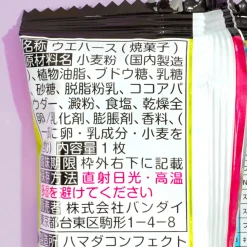 名称 ウエハース(焼菓子)
原材料名 小麦粉(国内製造
)、植物油脂、ブドウ糖、乳糖
、砂糖、脱脂粉乳、ココアパ
ウダー、澱粉、食塩、乾燥全
卵/乳化剤、膨脹剤、香料、(
一部に卵・乳成分・小麦を
内容量 1枚
期限 枠外右下に記載
方法 直射日光・高温
を避けてください
者 株式会社バンダイ
都台東区駒形1-4-8
所 ハマダコンフェクト